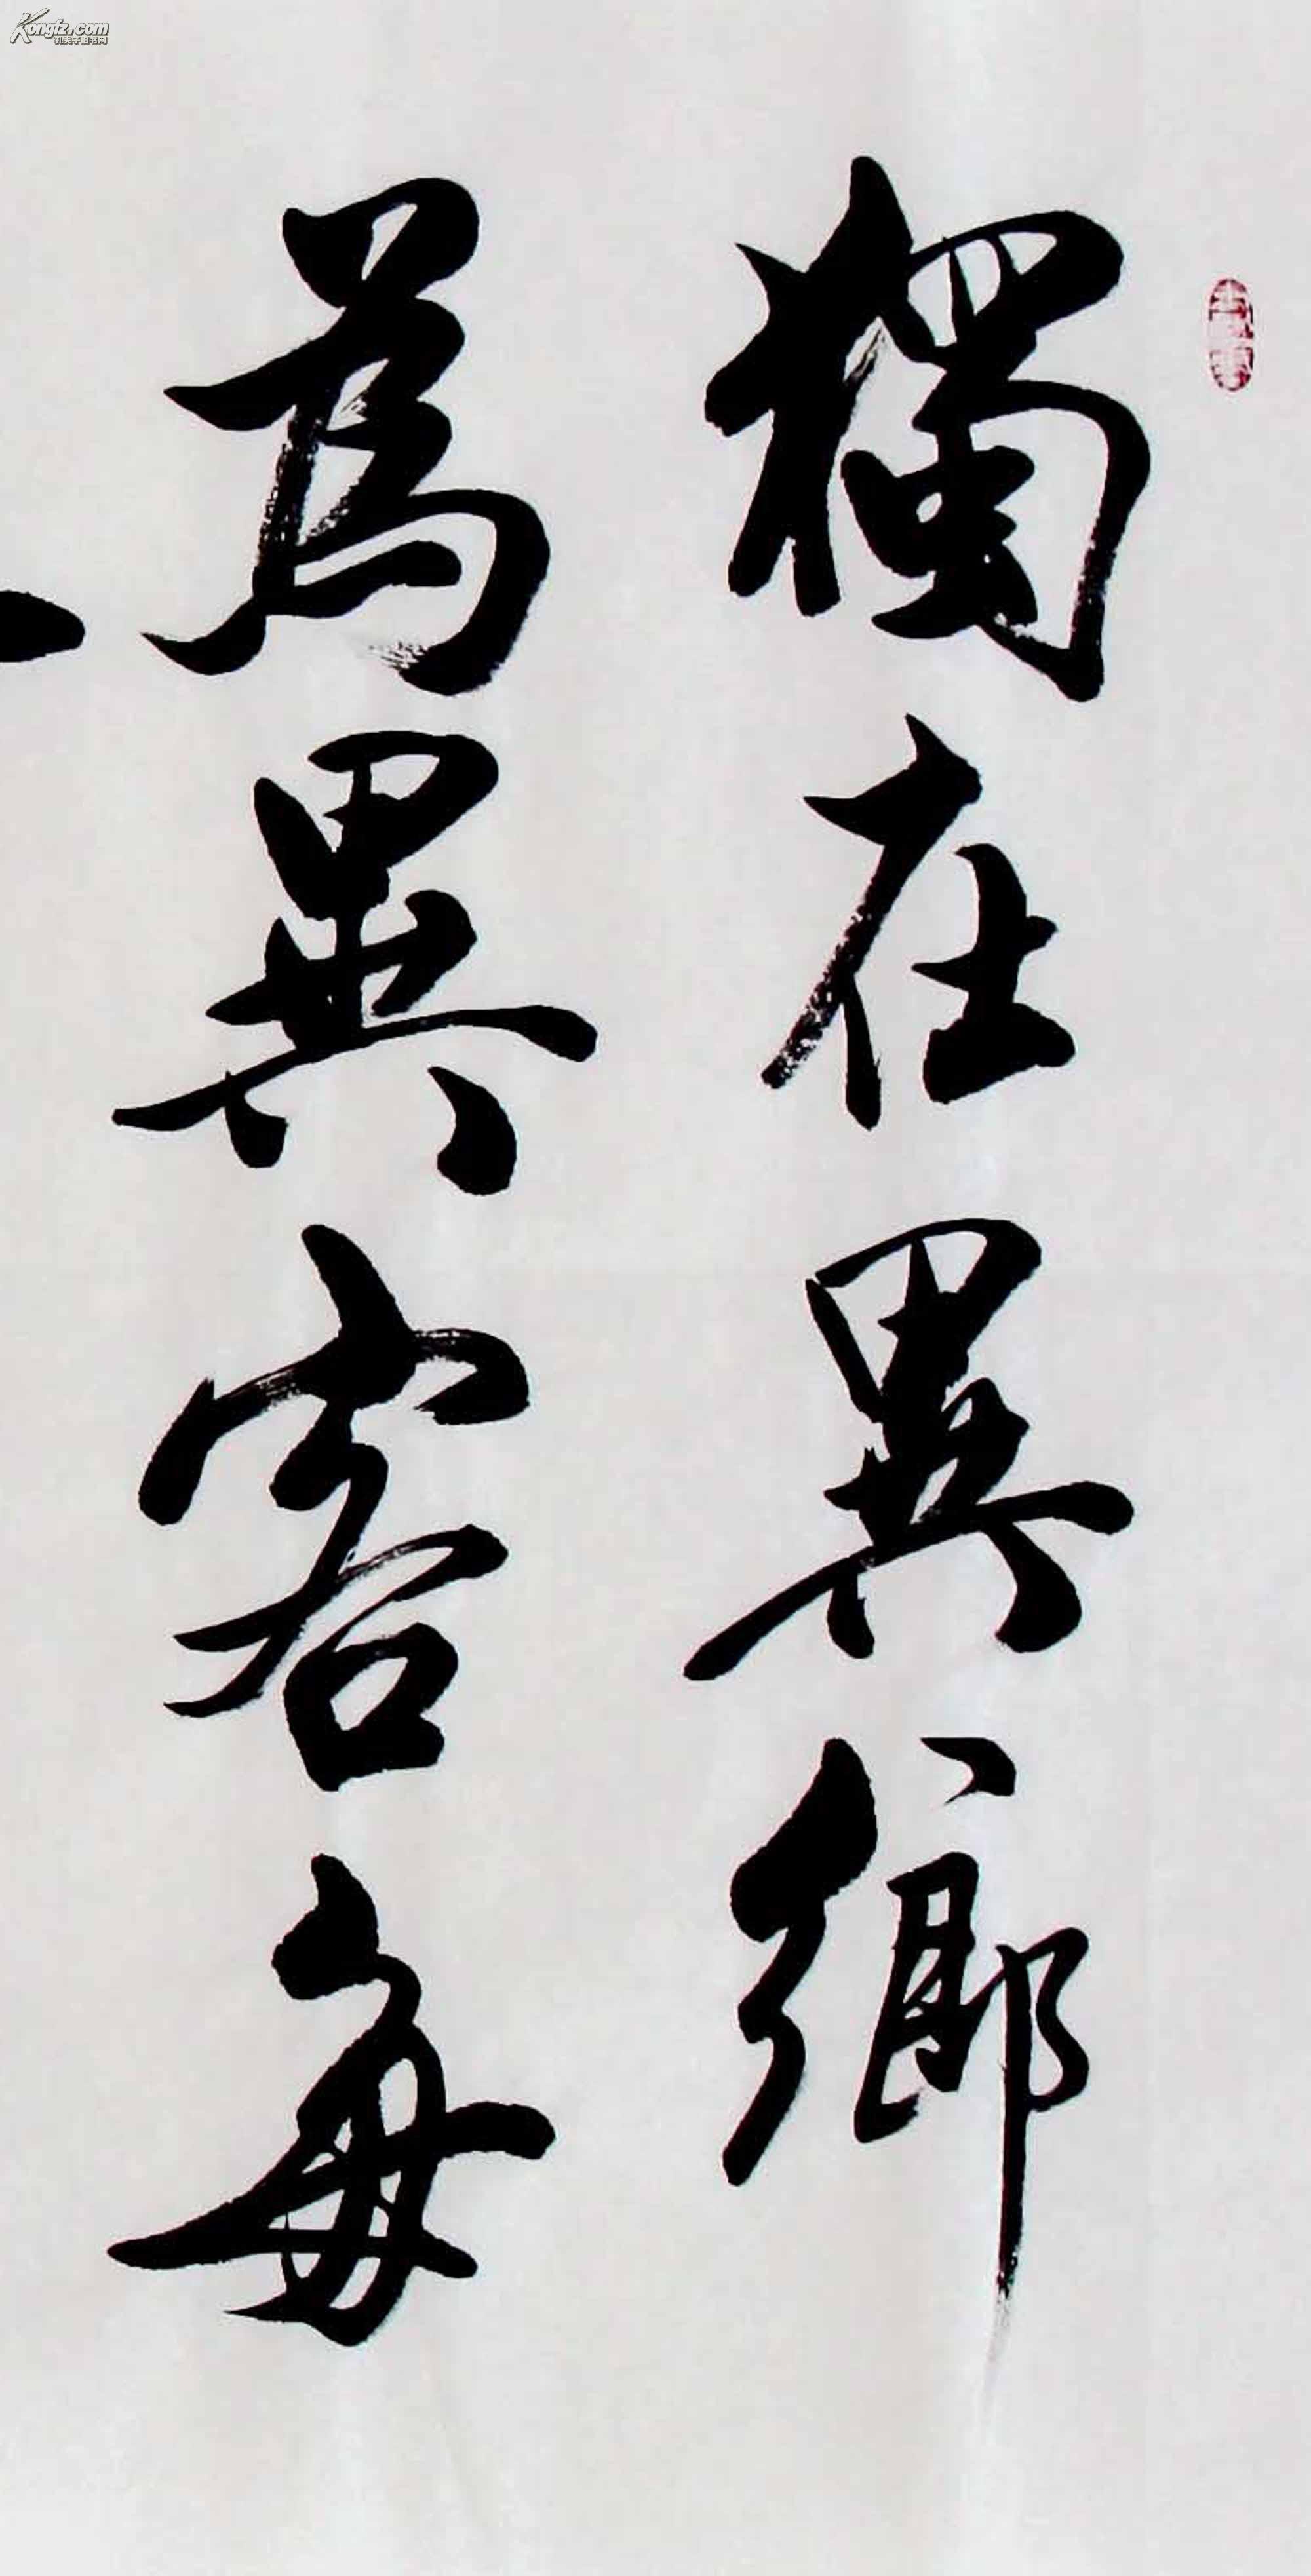 獨在異鄉
為異客每
Kongfz.com
孔夫子旧书网